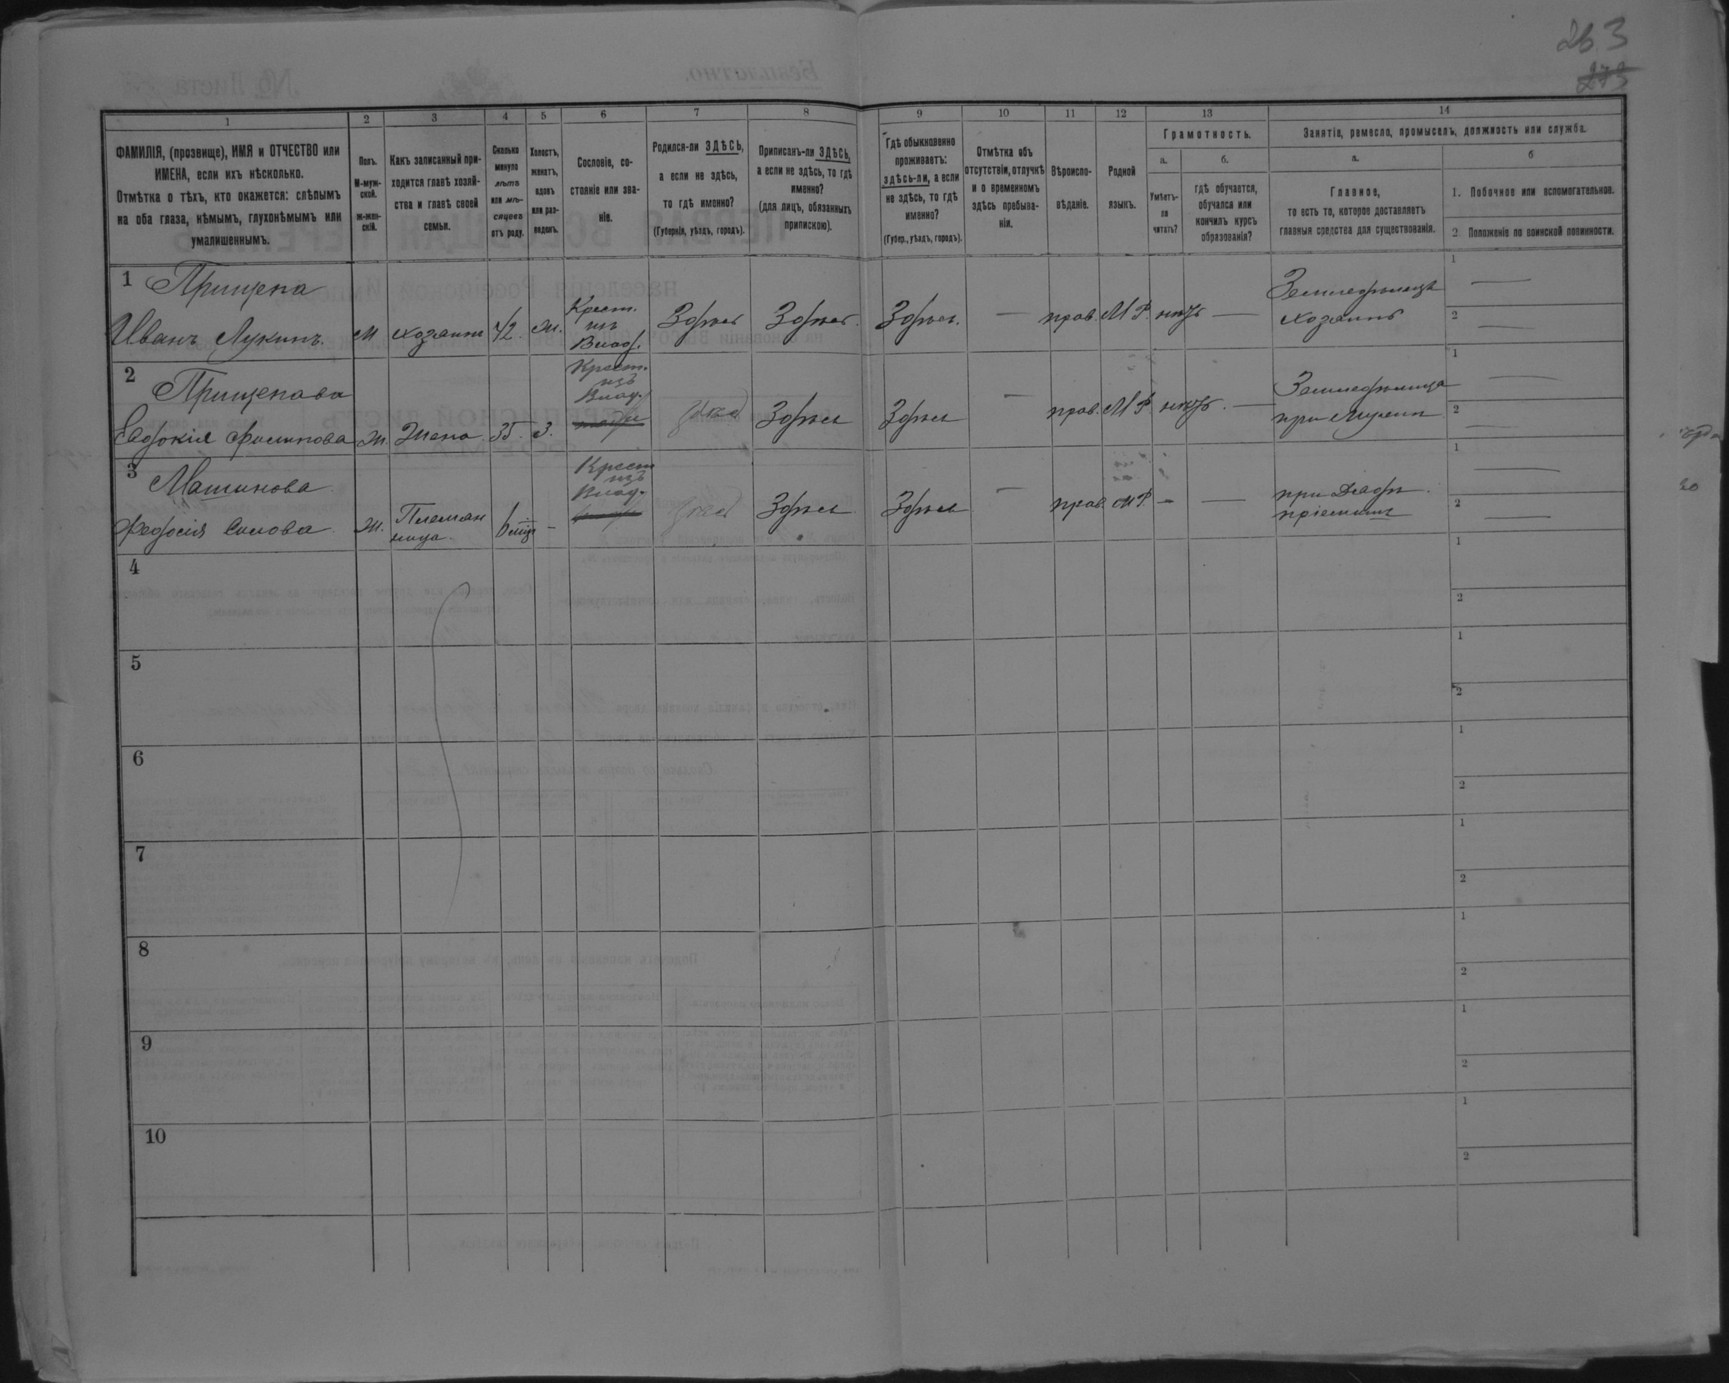 263
273
1
2
3
4
5
6
7
8
9
10
11
12
13
14
ФАМИЛІЯ, (прозвище), ИМЯ и ОТЧЕСТВО или
ИМЕНА, если ихъ нѣсколько.
Отмѣтка о тѣхъ, кто окажется: слѣпымъ
на оба глаза, нѣмымъ, глухонѣмымъ или
умалишеннымъ.
Полъ.
М-муж-
ской.
Ж-жен-
скій.
Какъ записанный при-
ходится главѣ хозяй-
ства и главѣ своей
семьи.
Сколько
минуло
лѣтъ
или мѣ-
сяцевъ
отъ роду.
Холостъ,
женатъ,
вдовъ
или раз-
веденъ.
Сословіе, со-
стояніе или зва-
ніе.
Родился-ли ЗДѢСЬ,
а если не здѣсь,
то гдѣ именно?
(Губернія, уѣздъ, городъ).
Приписанъ-ли ЗДѢСЬ,
а если не здѣсь, то гдѣ
именно?
(для лицъ, обязанныхъ
припискою).
Гдѣ обыкновенно
проживаетъ:
здѣсь-ли, а если
не здѣсь, то гдѣ
именно?
(Губер., уѣздъ, городъ).
Отмѣтка объ
отсутствіи, отлучкѣ
и о временномъ
здѣсь пребыва-
ніи.
Вѣроиспо-
вѣданіе.
Родной
языкъ.
Грамотность.
а.
б.
Умѣетъ-
ли
читать?
гдѣ обучается,
обучался или
кончилъ курсъ
образованія?
Занятіе, ремесло, промыселъ, должность или служба.
а.
б
Главное,
то есть то, которое доставляетъ
главныя средства для существованія.
1. Побочное или вспомогательное.
2. Положеніе по воинской повинности.
1
Прищепа
Иванъ Лукинъ. М хозяинъ 42. ж. Крест. изъ Влад. Здѣсь Здѣсь. Здѣсь. — прав. М Р. нѣтъ — Земледѣлецъ хозяинъ
1 —
2 —
2
Прищепова
Евдокія Филипова Ж. Жена 35. З. Крест. изъ Влад. Здѣсь Здѣсь — прав. М Р нѣтъ. — Земледѣлица при Мужѣ
1 —
2 —
3
Машинова
Федосія ж. Племян ница. 6 мѣц - Крест изъ Влад. Здѣсь Здѣсь — прав. М Р. — — при Дядѣ пріемышъ
1 —
2 —
4
1
2
5
1
2
6
1
2
7
1
2
8
1
2
9
1
2
10
1
2